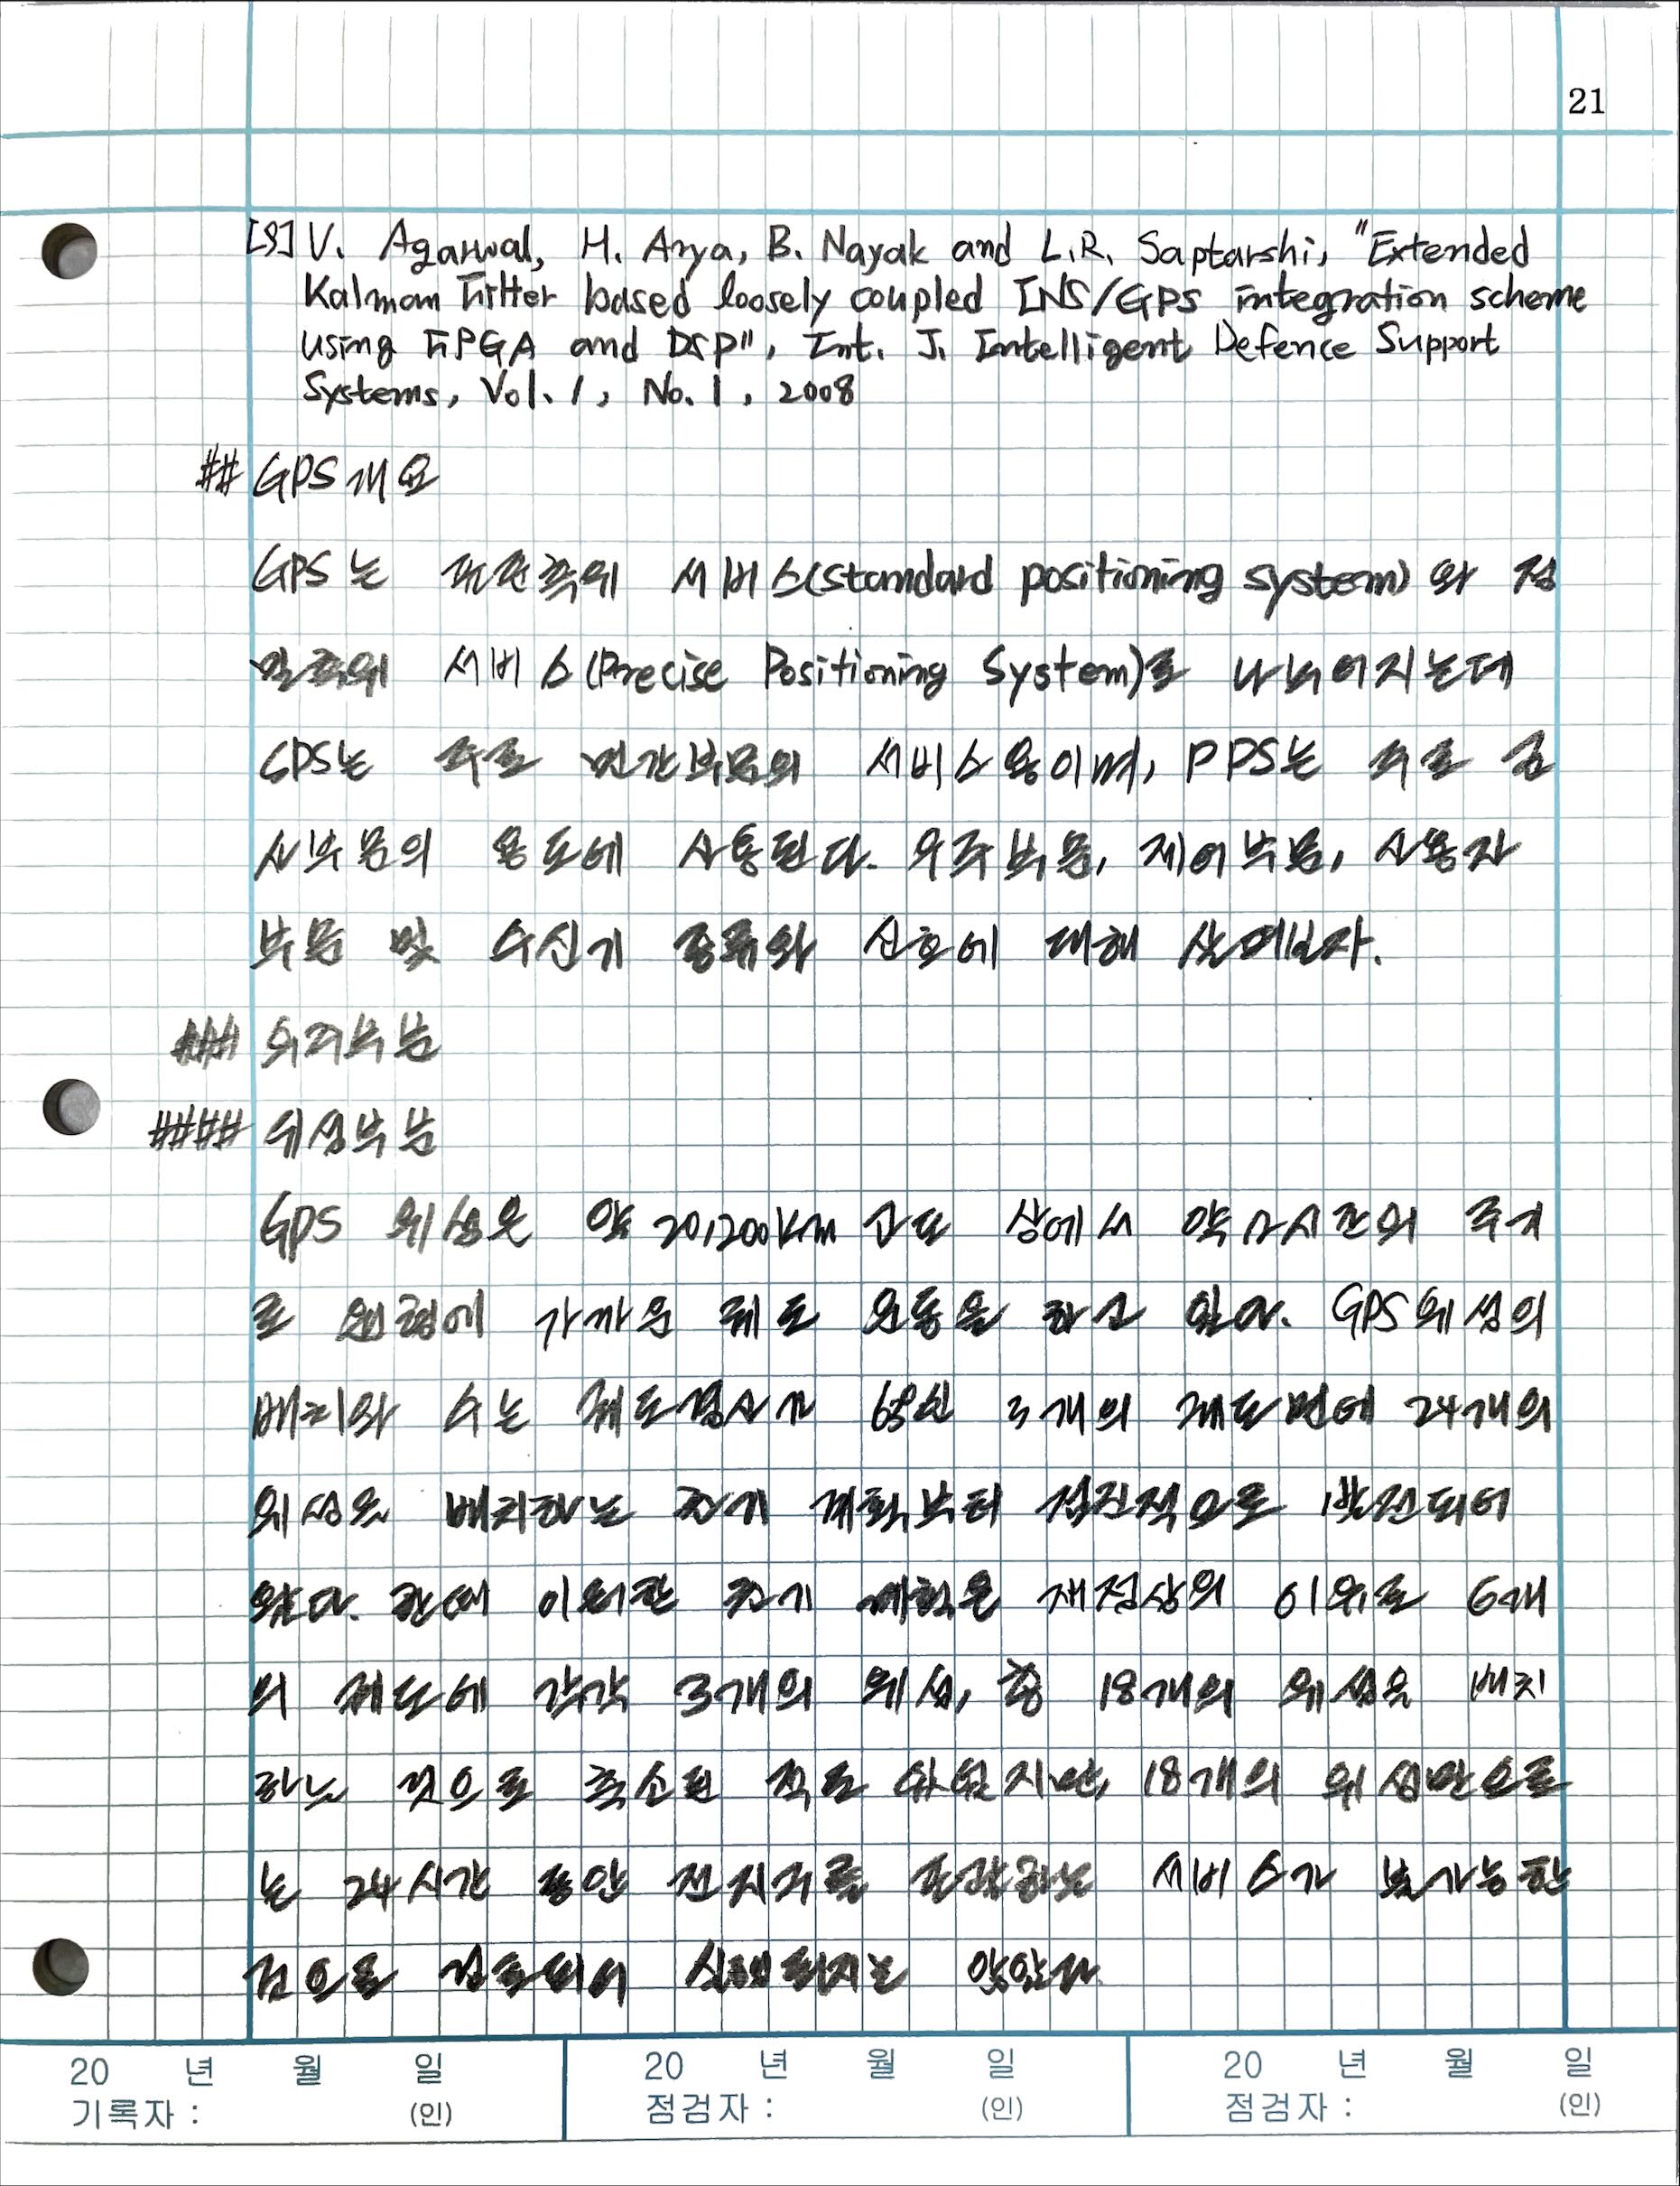 21
[9] V. Agarwal, H. Arya, B. Nayak and L.R. Saptarshi, "Extended
Kalman Filter based loosely coupled INS/GPS integration scheme
using FPGA and DSP", Int. J. Intelligent Defence Support
Systems, Vol. 1, No. 1, 2008
## GPS 개요
GPS는 표준측위 서비스(standard positioning system)와 정
밀측위 서비스(Precise Positioning System)로 나뉘어지는데
SPS는 주로 민간부문의 서비스용이며, PPS는 주로 군
사부문의 용도에 사용된다. 우주부문, 제어부문, 사용자
부문 및 수신기 종류와 신호에 대해 살펴보자.
### 우주부분
#### 위성부분
GPS 위성은 약 20,200km 고도 상에서 약 12시간의 주기
로 원형에 가까운 궤도 운동을 하고 있다. GPS위성의
배치와 수는 궤도경사가 63°인 3개의 궤도면에 24개의
위성을 배치하는 초기 계획부터 점진적으로 발전되어
왔다. 한때 이러한 초기 계획은 재정상의 이유로 6개
의 궤도에 각각 3개의 위성, 총 18개의 위성을 배치
하는 것으로 축소된 적도 있었지만, 18개의 위성만으로
는 24시간 동안 전지구를 망라하는 서비스가 불가능한
것으로 검토되어 실행되지는 않았다.
20 년 월 일
기록자 : (인)
20 년 월 일
점검자 : (인)
20 년 월 일
점검자 : (인)